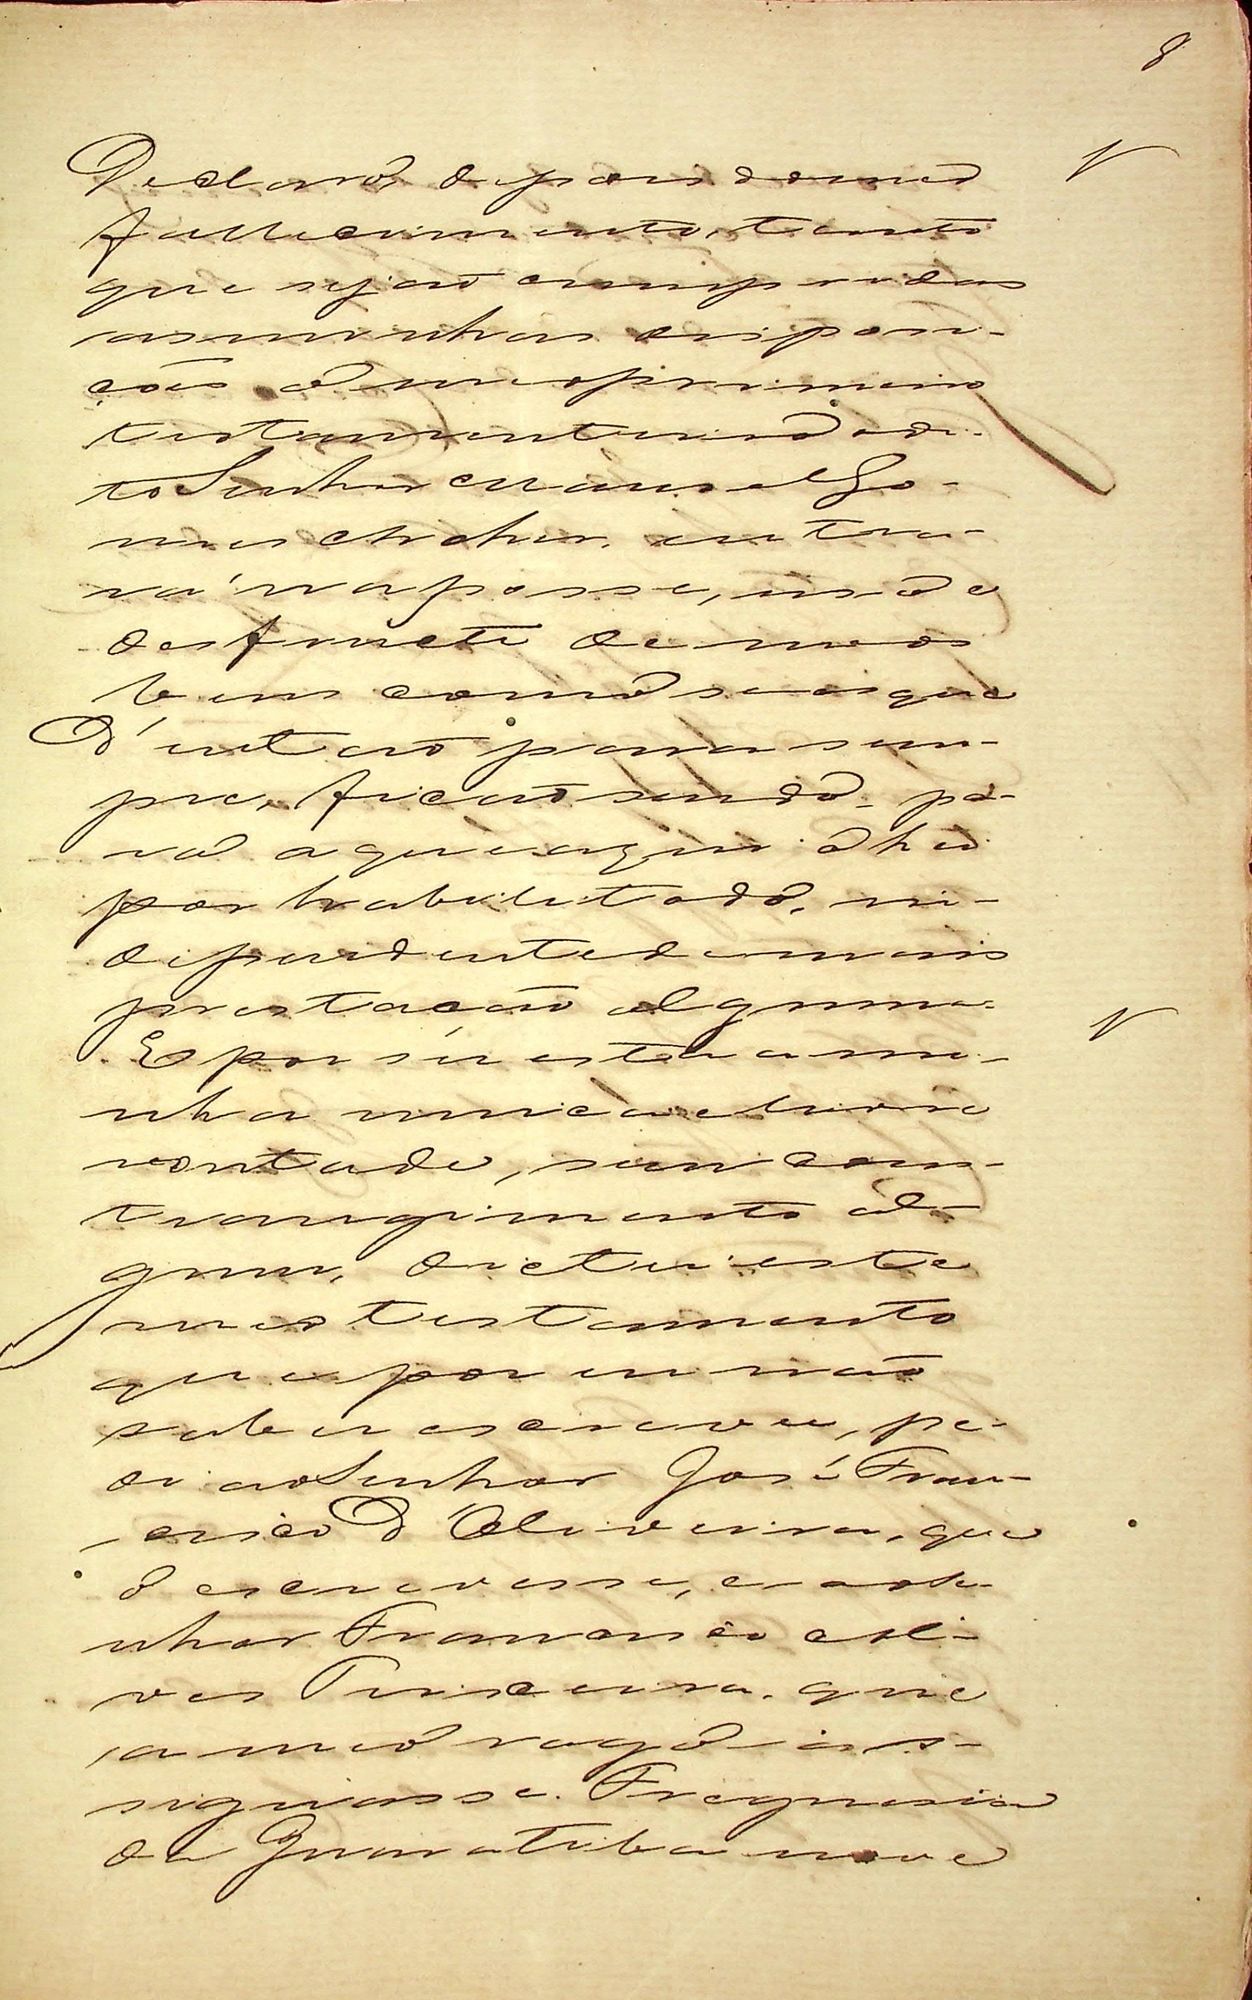 8
Declaro, depois do meo
fallecimento, tanto
que sejaõ cumpridas
as minhas disposi-
ções o meo primeiro
testamenteiro o di-
to Senhor Manoel Go-
mes entra-
rá na posse, uso e
desfructe de meos
bens como seos que
d'entaõ para sem-
pre, ficaõ sendo, pa-
ra o que aqui o hei
por habilitado, in-
dependente de mais
prestacaõ alguma.
E por ser esta a mi-
nha unica e livre
vontade, sem cons-
trangimento al-
gum, dictei este
meo testamento
que por eu naõ
saber escrever, pe-
di ao Senhor José Fran-
cisco d'Oliveira, que
o escrevesse, e ao Se-
nhor Francisco Al-
ves que
a meo rogo as-
signasse. Freguesia
de Guaratiba nove